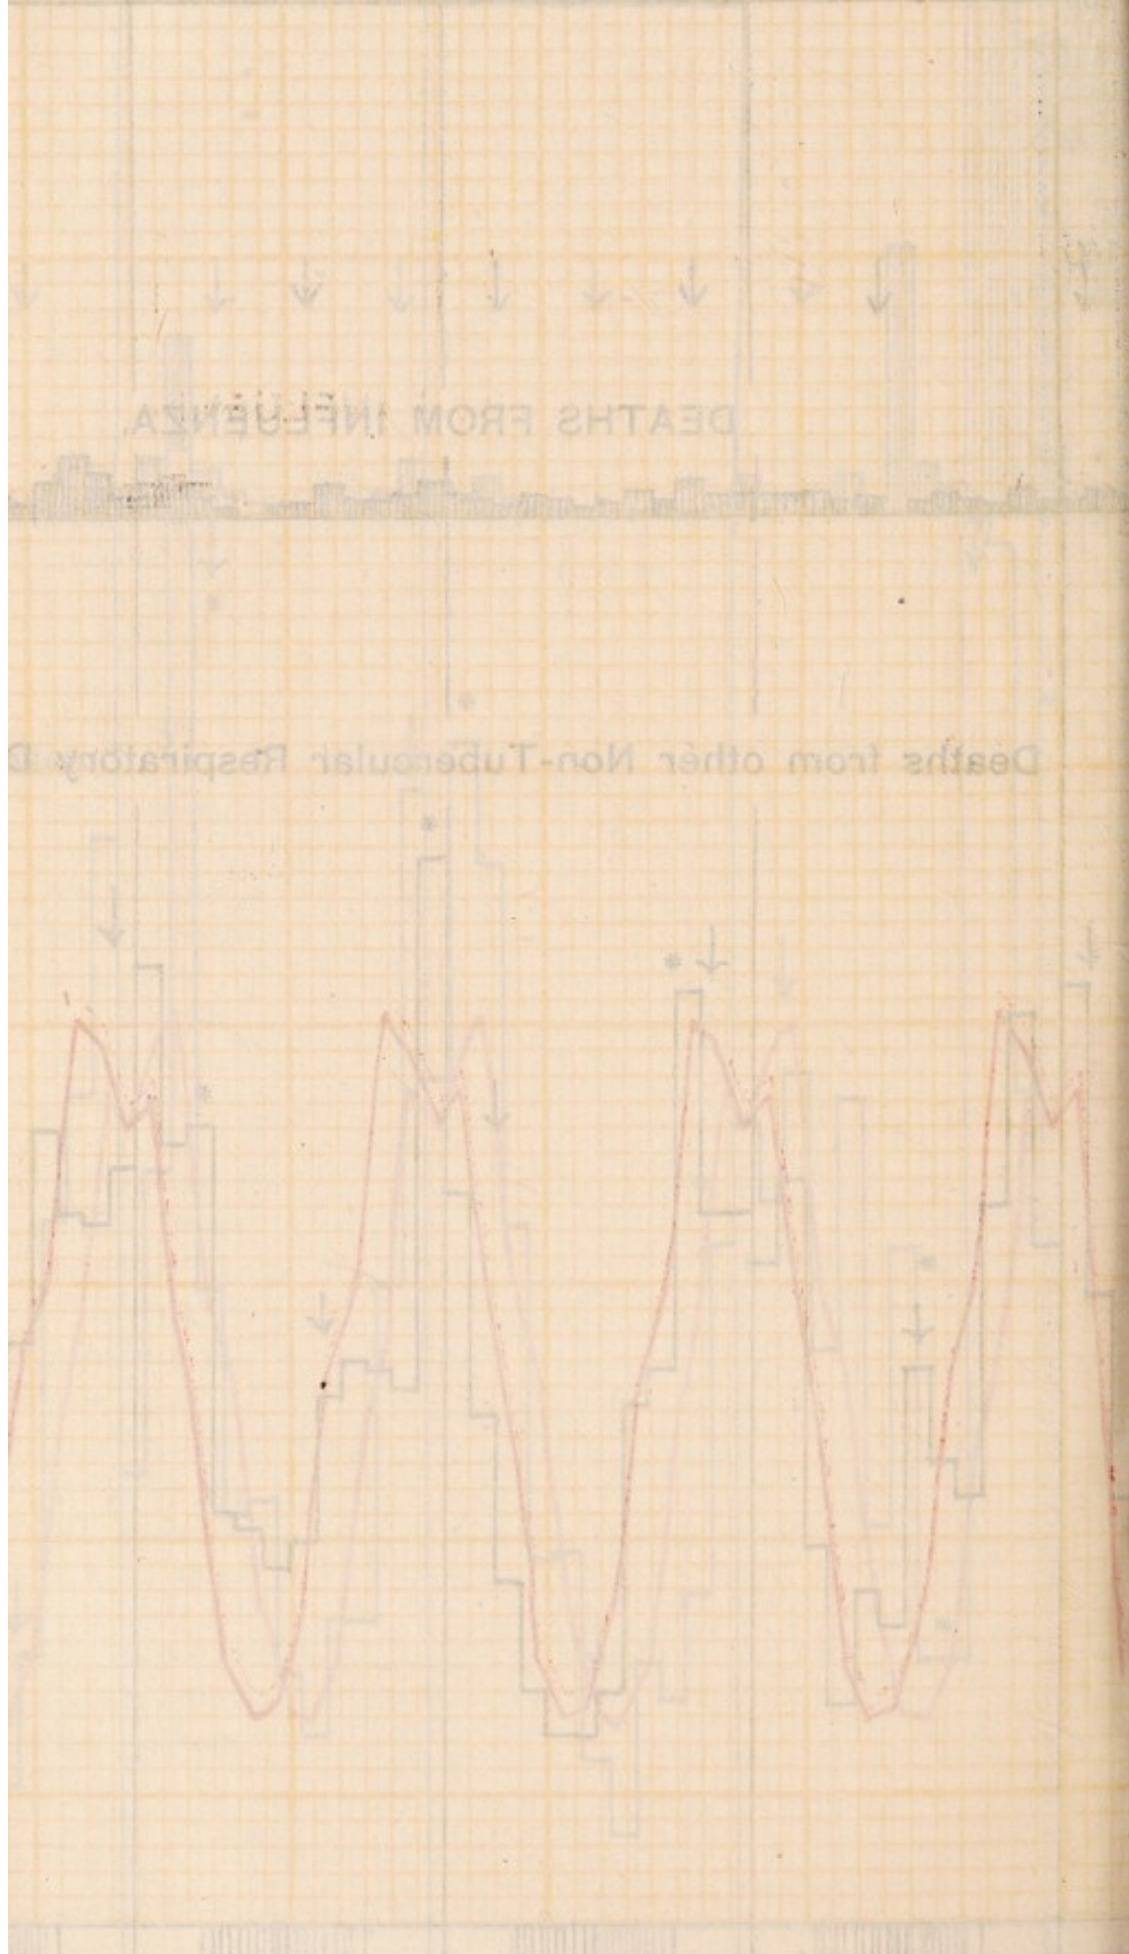 DEATHS FROM INFLUENZA.
Deaths from other Non-Tubercular Respiratory D